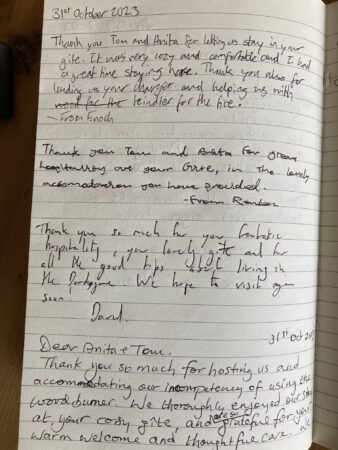 31st October 2023
Thank you Tom and Anita for letting us stay in your
gite. It was very cozy and comfortable and I had
a great time staying here. Thank you also for
lending us your charger and helping us with
wood for the kindler for the fire!
~ From Enoch
Thank you Tom and Anita for great
hospitality at your Gite, in the lovely
accomodation you have provided.
- From Reuben
Thank you so much for your fantastic
hospitality, your lovely gite and for
all the good tips about living in
the Dordogne. We hope to visit again
soon!
David.
31st Oct 202
Dear Anita & Tom,
Thank you so much for hosting us and
accommodating our incompetency of using the
woodburner. We thoroughly enjoyed our stay
at your cosy gite, and are so grateful for your
warm welcome and thoughtful care. We